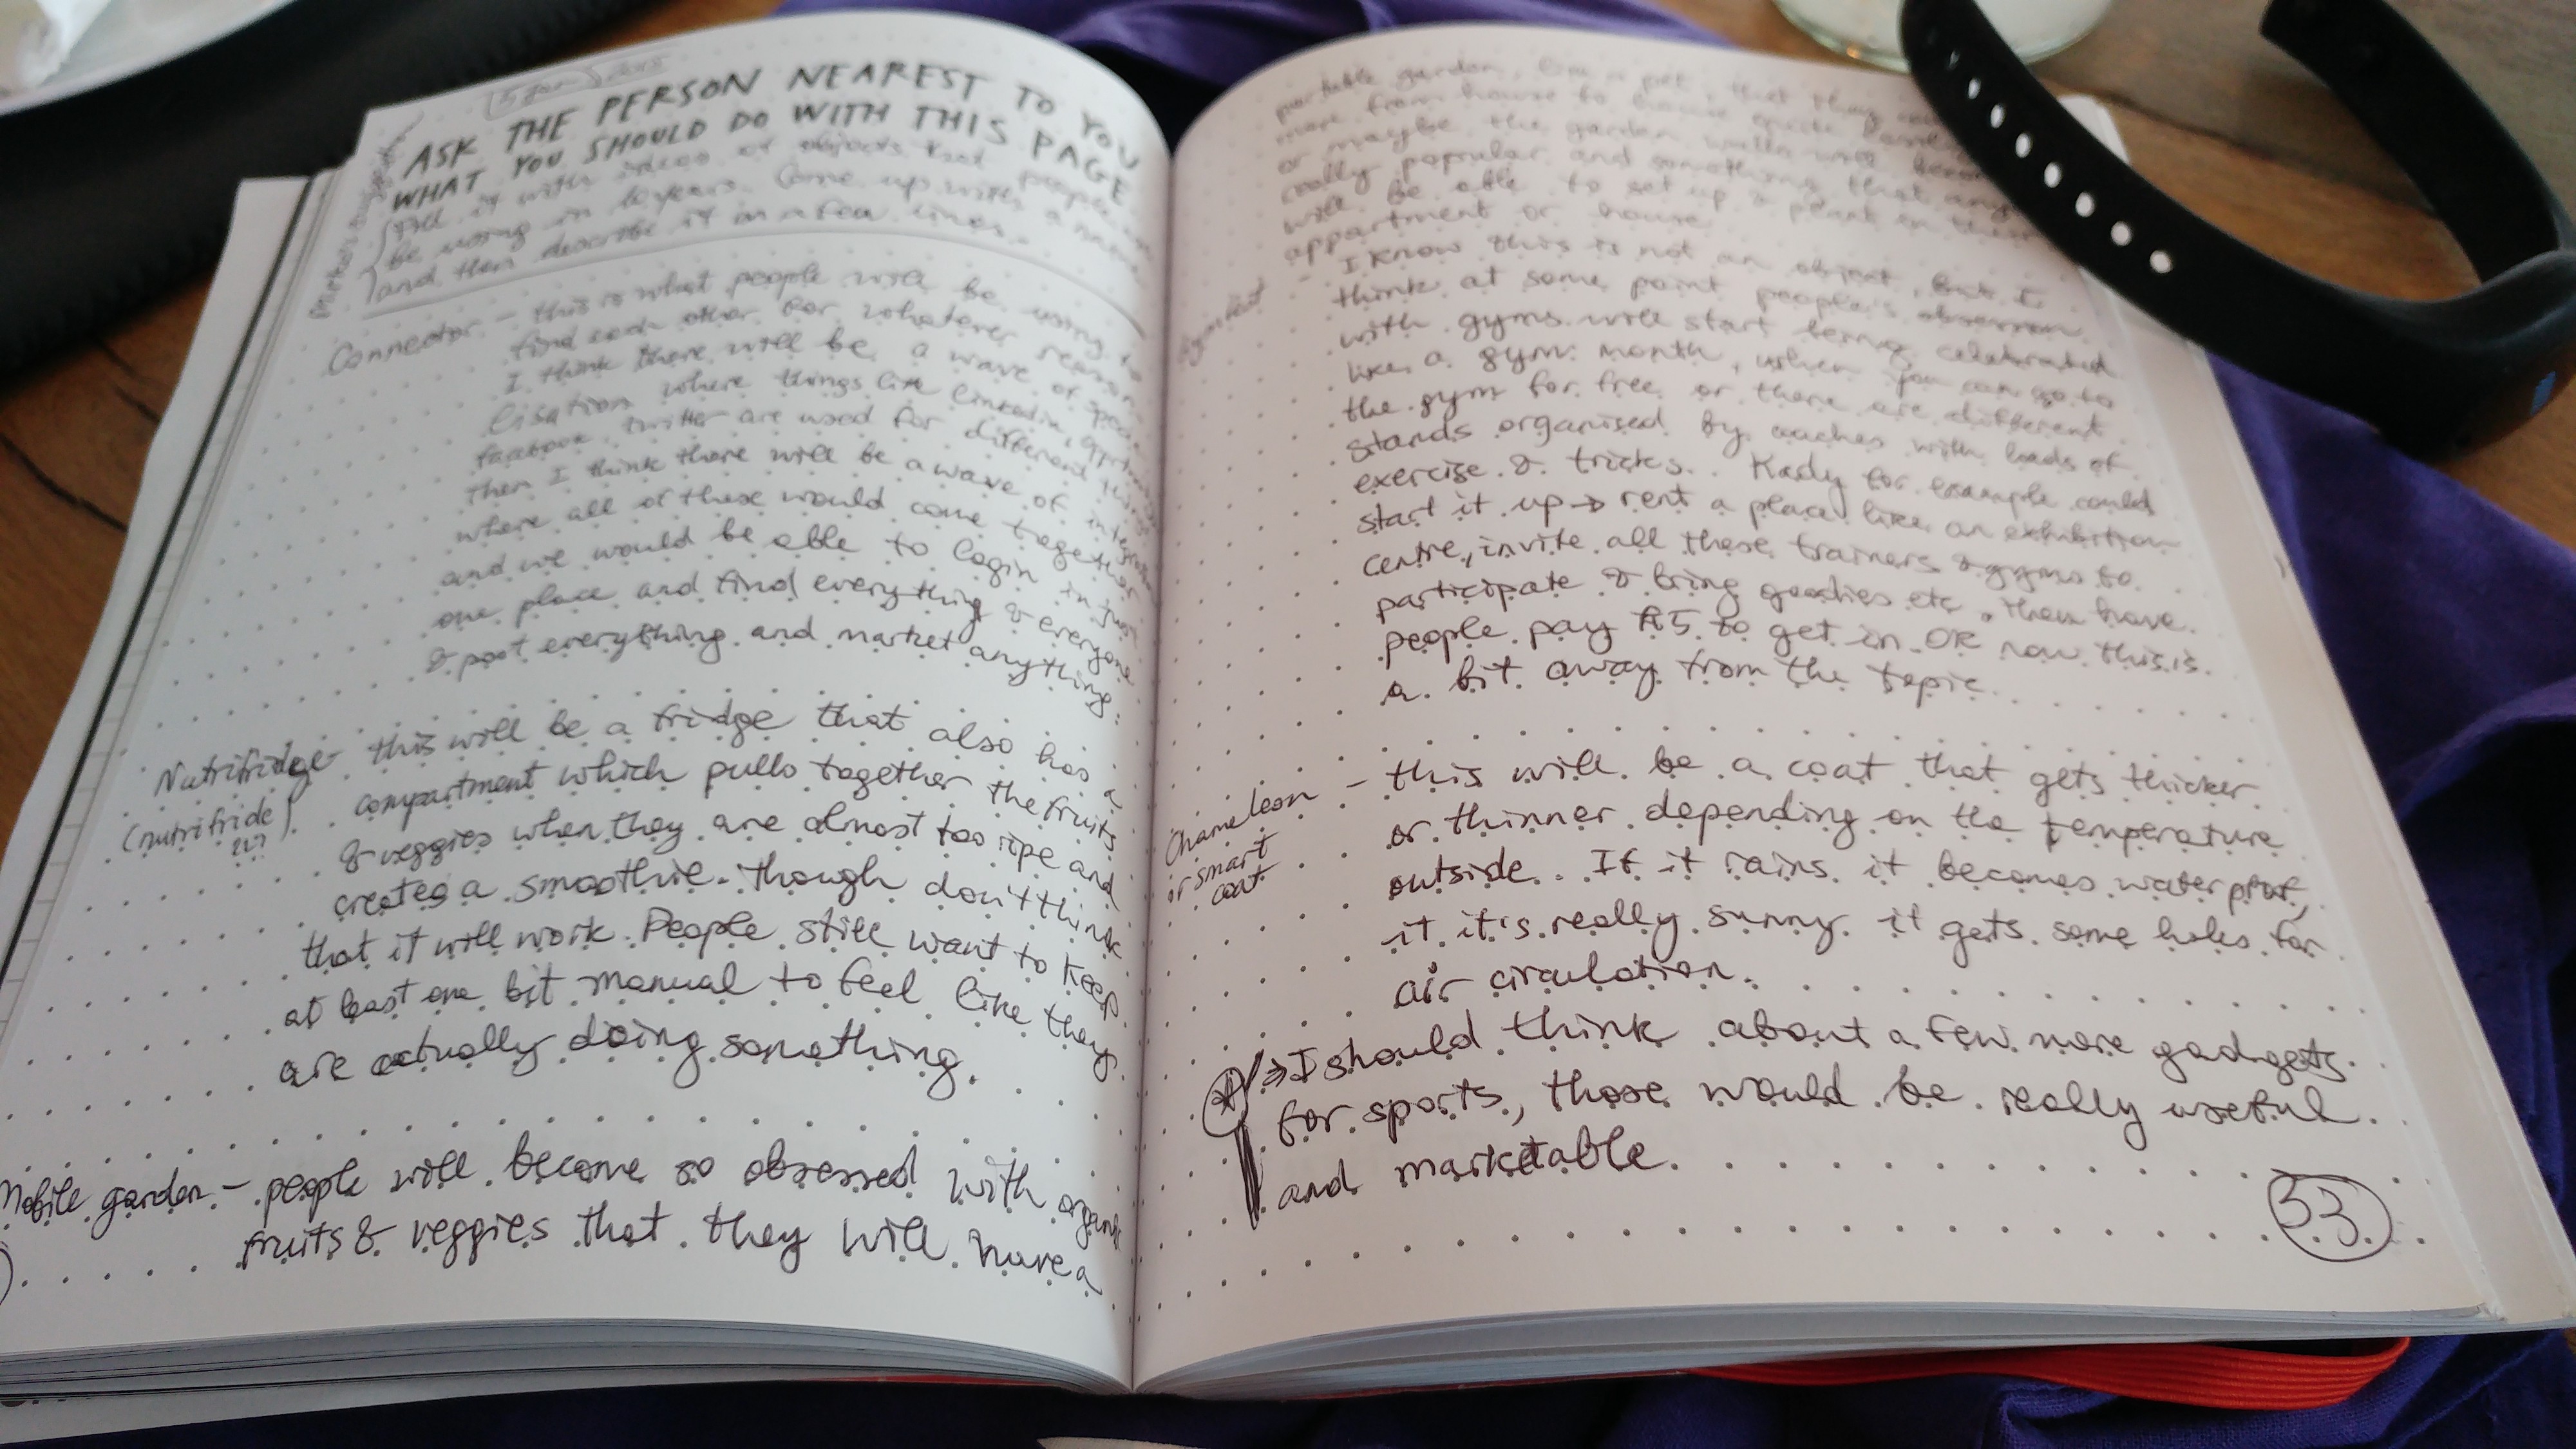 5 Jan
ASK THE PERSON NEAREST TO YOU
WHAT YOU SHOULD DO WITH THIS PAGE
Fill it with ideas of objects that people
be using in 10 years. Come up with a name
and then describe it in a few lines.
Connector - this is what people will be using to
find each other for whatever reason
I think there will be a wave of specia
lisation where things like linkedin,
facebook, twitter are used for different things
then I think there will be a wave of
where all of these would come together
and we would be able to login in just
one place and find everything & everyone
& post everything and market anything.
Nutrifridge - this will be a fridge that also has a
(nutrifride compartment which pulls together the fruits
& veggies when they are almost too ripe and
creates a smoothie. though don't think
that it will work. People still want to keep
at least one bit manual to feel like they
are actually doing something.
Mobile garden - people will become so obsessed with organic
fruits & veggies that they will have a
portable garden, like a pet, that they
move from house to house
or maybe the garden walls will become
really popular and something that
will be able to set up a plant in their
appartment or house
Gymfest - I know this is not an object, but I
think at some point people's obsession
with gyms will start being celebrated
like a gym month, when you can go to
the gym for free or there are different
stands organised by coaches with loads of
exercise & tricks. Kady for example could
start it up → rent a place like an exhibition
centre, invite all these trainers & gyms to
participate & bring goodies etc, then have
people pay 5 to get in. OK now this is
a bit away from the topic.
Chameleon - this will be a coat that gets thicker
or smart or thinner depending on the temperature
coat outside. If it rains it becomes waterproof,
it it's really sunny it gets some holes for
air circulation.
⇒ I should think about a few more gadgets
for sports, those would be really useful
and marketable.
33